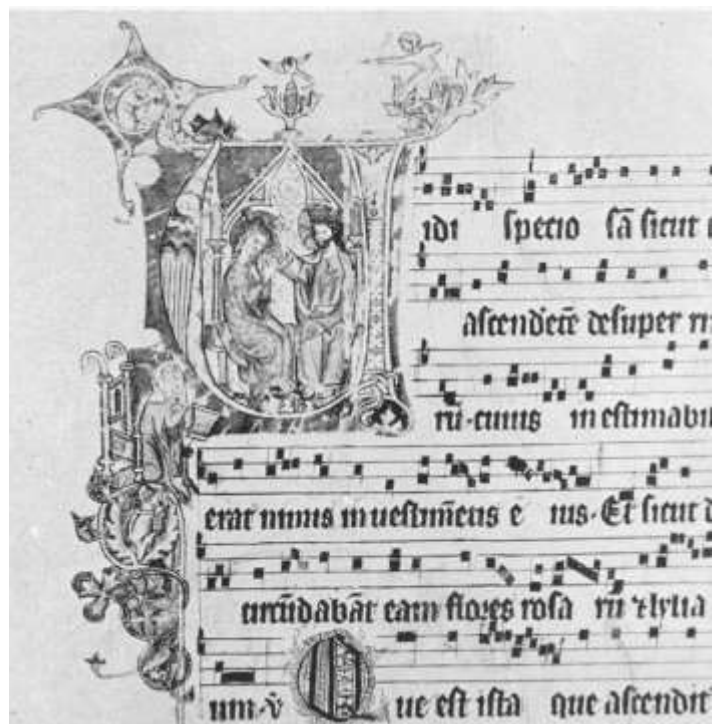 Uidi specio sā sicut
ascendētē desuper ri
rū·cuius inestimabil
erat nimis in uestimētis e ius·Et sicut d
circūdabāt eam flores rosa rū ⁊ lylia
um·v̊ Que est ista que ascendit